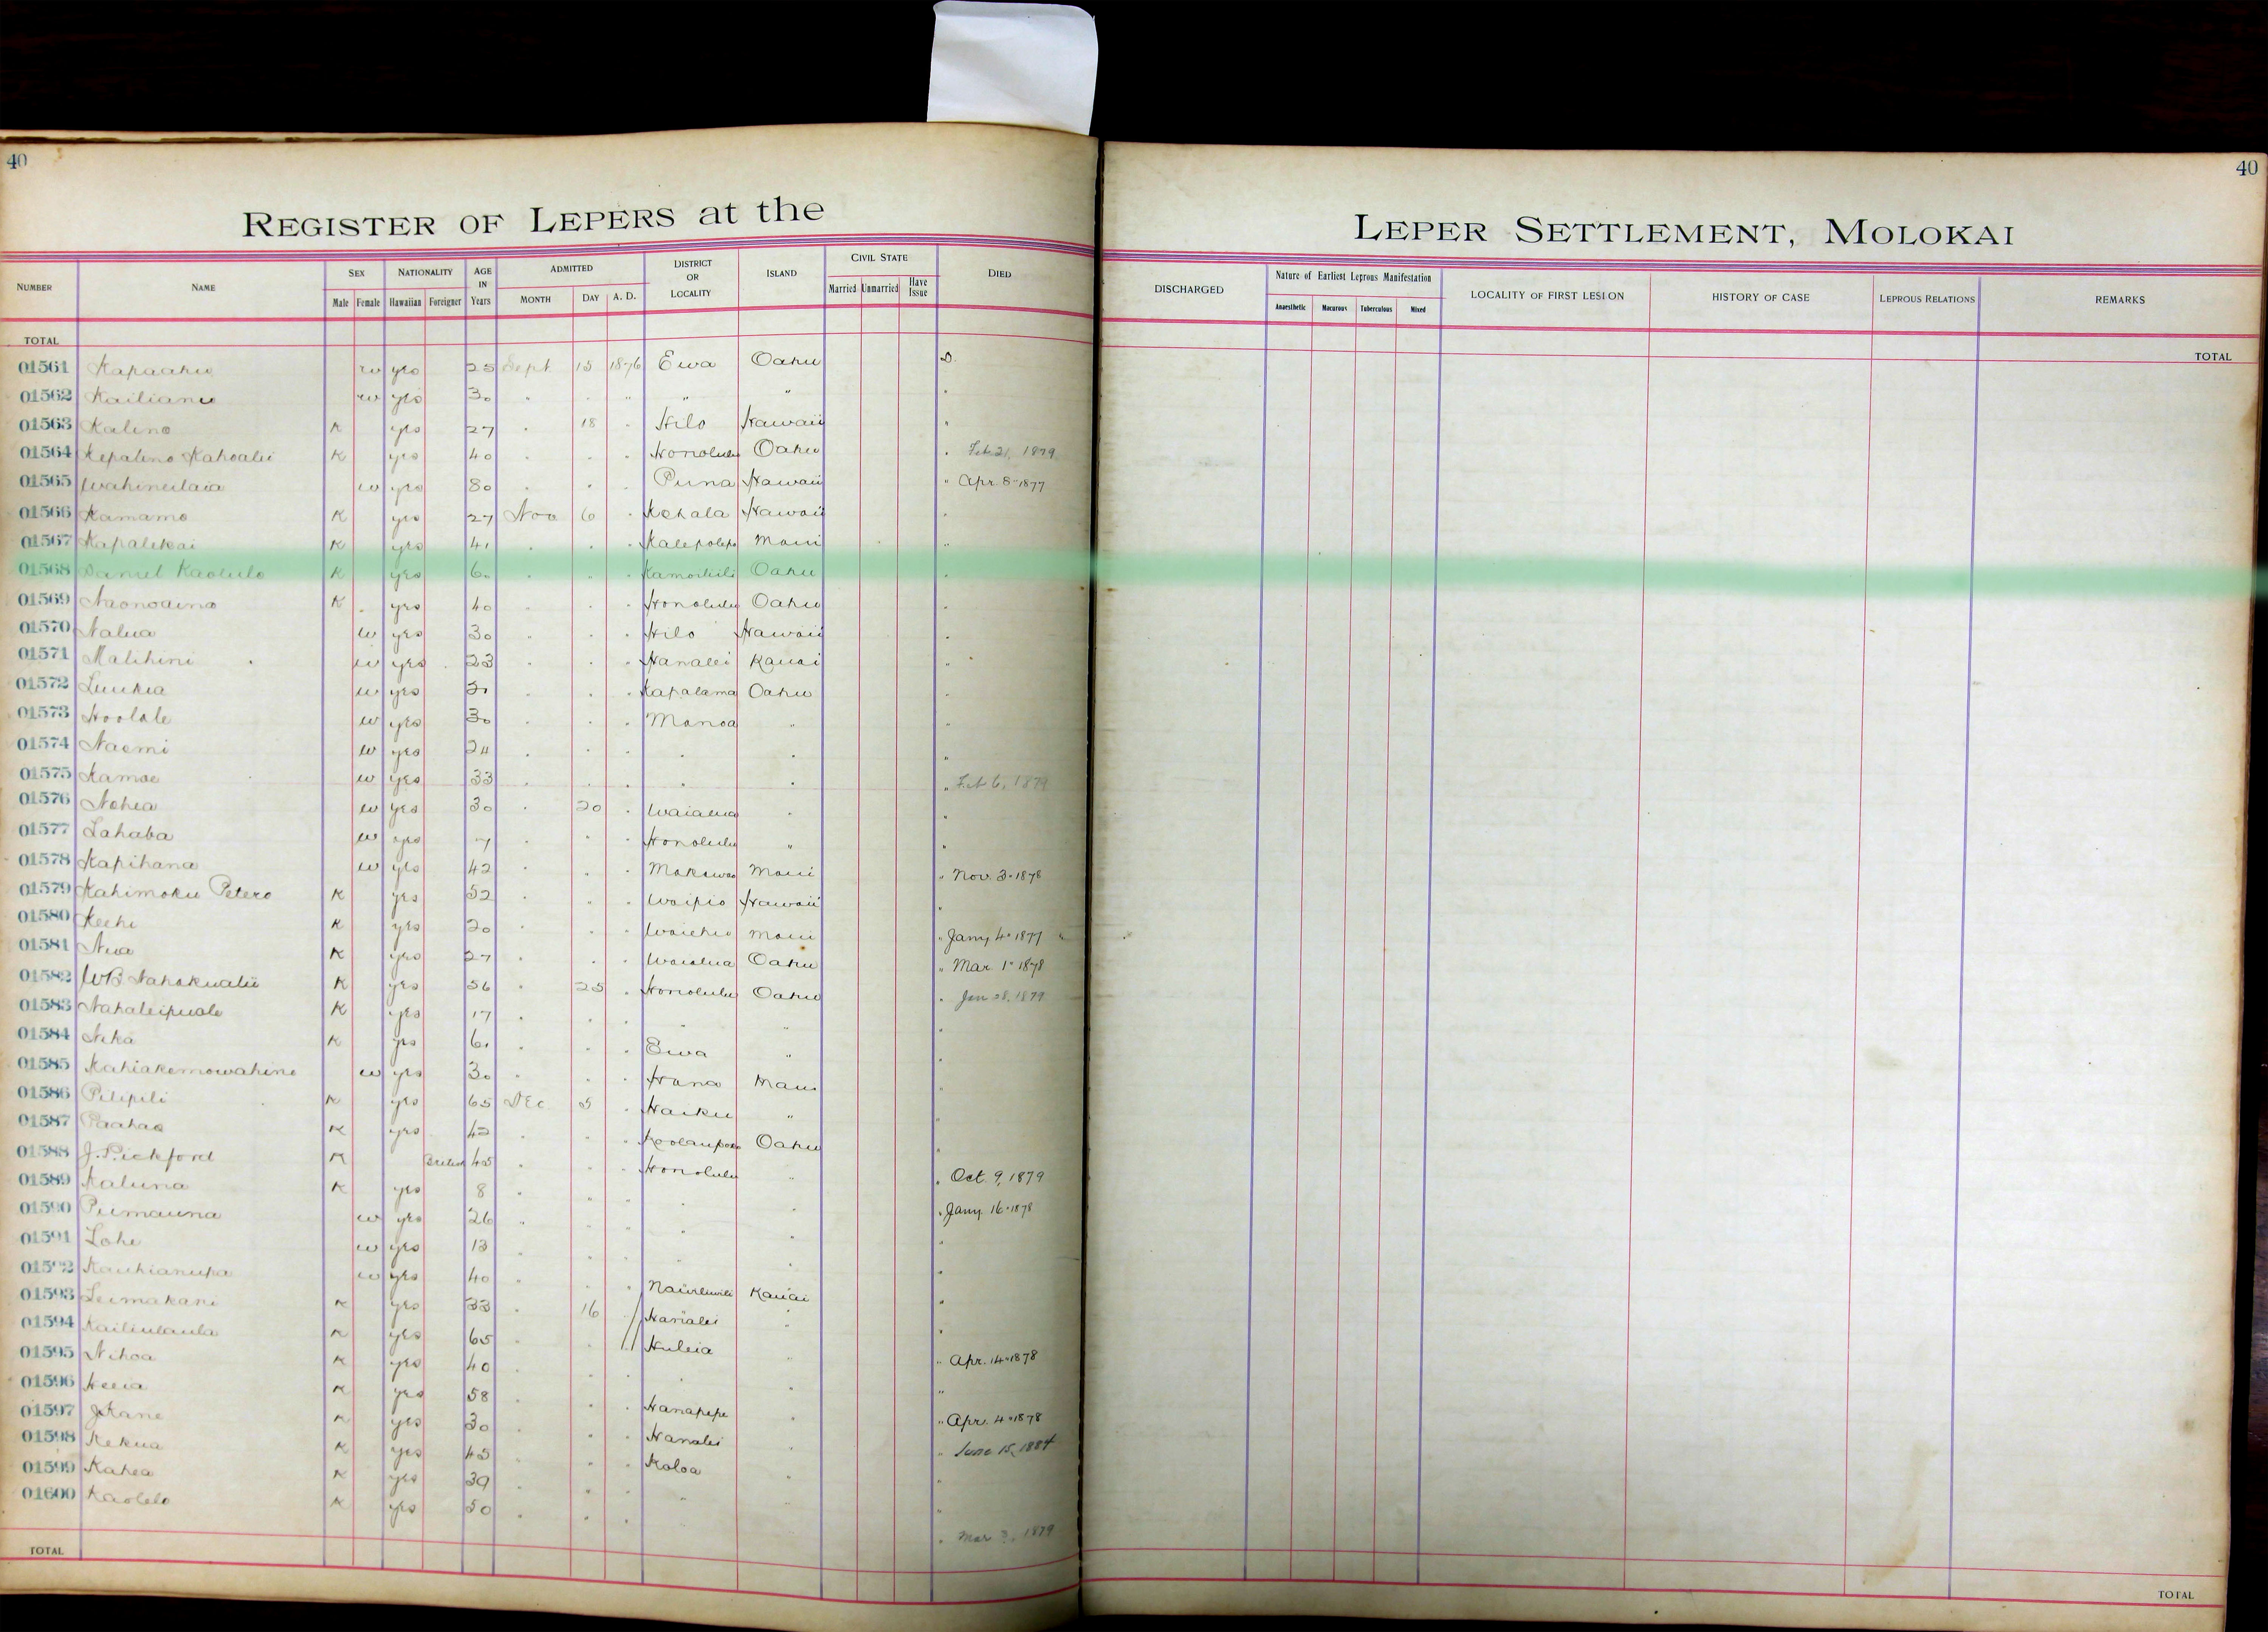 40
REGISTER OF LEPERS at the
NUMBER NAME SEX NATIONALITY AGE IN Years ADMITTED DISTRICT OR LOCALITY ISLAND CIVIL STATE DIED
Male Female Hawaiian Foreigner MONTH DAY A. D. Married Unmarried Have Issue
TOTAL
01561 Kapaahu w yes 25 Sept 15 1876 Ewa Oahu D.
01562 Kailianu w yes 30 " " " " " "
01563 Kalino K yes 27 " 18 " Hilo Hawaii "
01564 Kepalino Kahoalii K yes 40 " " " Honolulu Oahu " Feb 21, 1879
01565 Wahineilaia w yes 80 " " " Puna Hawaii " Apr. 8" 1877
01566 Kamamo K yes 27 Nov 6 " Kohala Hawaii "
01567 Kapalekai K yes 41 " " " Kalepolepo Maui "
01568 Daniel Kaolulo K yes 60 " " " Kamoiliili Oahu "
01569 K yes 40 " " " Honolulu Oahu "
01570 Nalua w yes 30 " " " Hilo Hawaii "
01571 Malihini w yes 23 " " " Hanalei Kauai "
01572 Luukia w yes " " " Kapalama Oahu "
01573 Hoolale w yes 30 " " " Manoa " "
01574 Naomi w yes 24 " " " " " "
01575 Kamae w yes 33 " " " " " " Feb 6, 1879
01576 Nohea w yes 30 " 20 " Waialua " "
01577 Lahaba w yes 7 " " " Honolulu " "
01578 Kapihana w yes 42 " " " Makawao Maui " Nov. 3" 1878
01579 Kahimoku Petero K yes 52 " " " Waipio Hawaii "
01580 Keehi K yes 20 " " " Waiehu Maui " Jany 4" 1877 "
01581 Niua K yes 27 " " " Waialua Oahu " Mar. 1" 1878
01582 WB Nahakualii K yes 56 " 25 " Honolulu Oahu " Jan 28, 1879
01583 Nahaleipuale K yes 17 " " " " " "
01584 Nika K yes 61 " " " Ewa " "
01585 Kahiakemowahine w yes 30 " " " Hana Maui "
01586 Pilipili K yes 65 Dec 5 " Haiku " "
01587 Paahao K yes 42 " " " Koolaupoko Oahu "
01588 J. Pickford K British 45 " " " Honolulu " " Oct. 9, 1879
01589 Kaluna K yes 8 " " " " " " Jany 16" 1878
01590 Puimauna w yes 26 " " " " " "
01591 Lohe w yes 13 " " " " " "
01592 Kauhianupa w yes 40 " " " Nawiliwili Kauai "
01593 Leimakani K yes 33 " 16 " Hanalei " "
01594 Kailiulaula K yes 65 " " " Huleia " " Apr. 14" 1878
01595 Nihoa K yes 40 " " " " " "
01596 Heeia K yes 58 " " " Hanapepe " " Apr. 4" 1878
01597 J Kane K yes 30 " " " Hanalei " " June 15, 1884
01598 Kekua K yes 45 " " " Koloa " "
01599 Kahea K yes 39 " " " " " "
01600 Kaolelo K yes 50 " " " " Mar 3, 1879
TOTAL
40
LEPER SETTLEMENT, MOLOKAI
DISCHARGED Nature of Earliest Leprous Manifestation LOCALITY OF FIRST LESION HISTORY OF CASE LEPROUS RELATIONS REMARKS
Anaesthetic Macurous Tuberculous Mixed
TOTAL
TOTAL